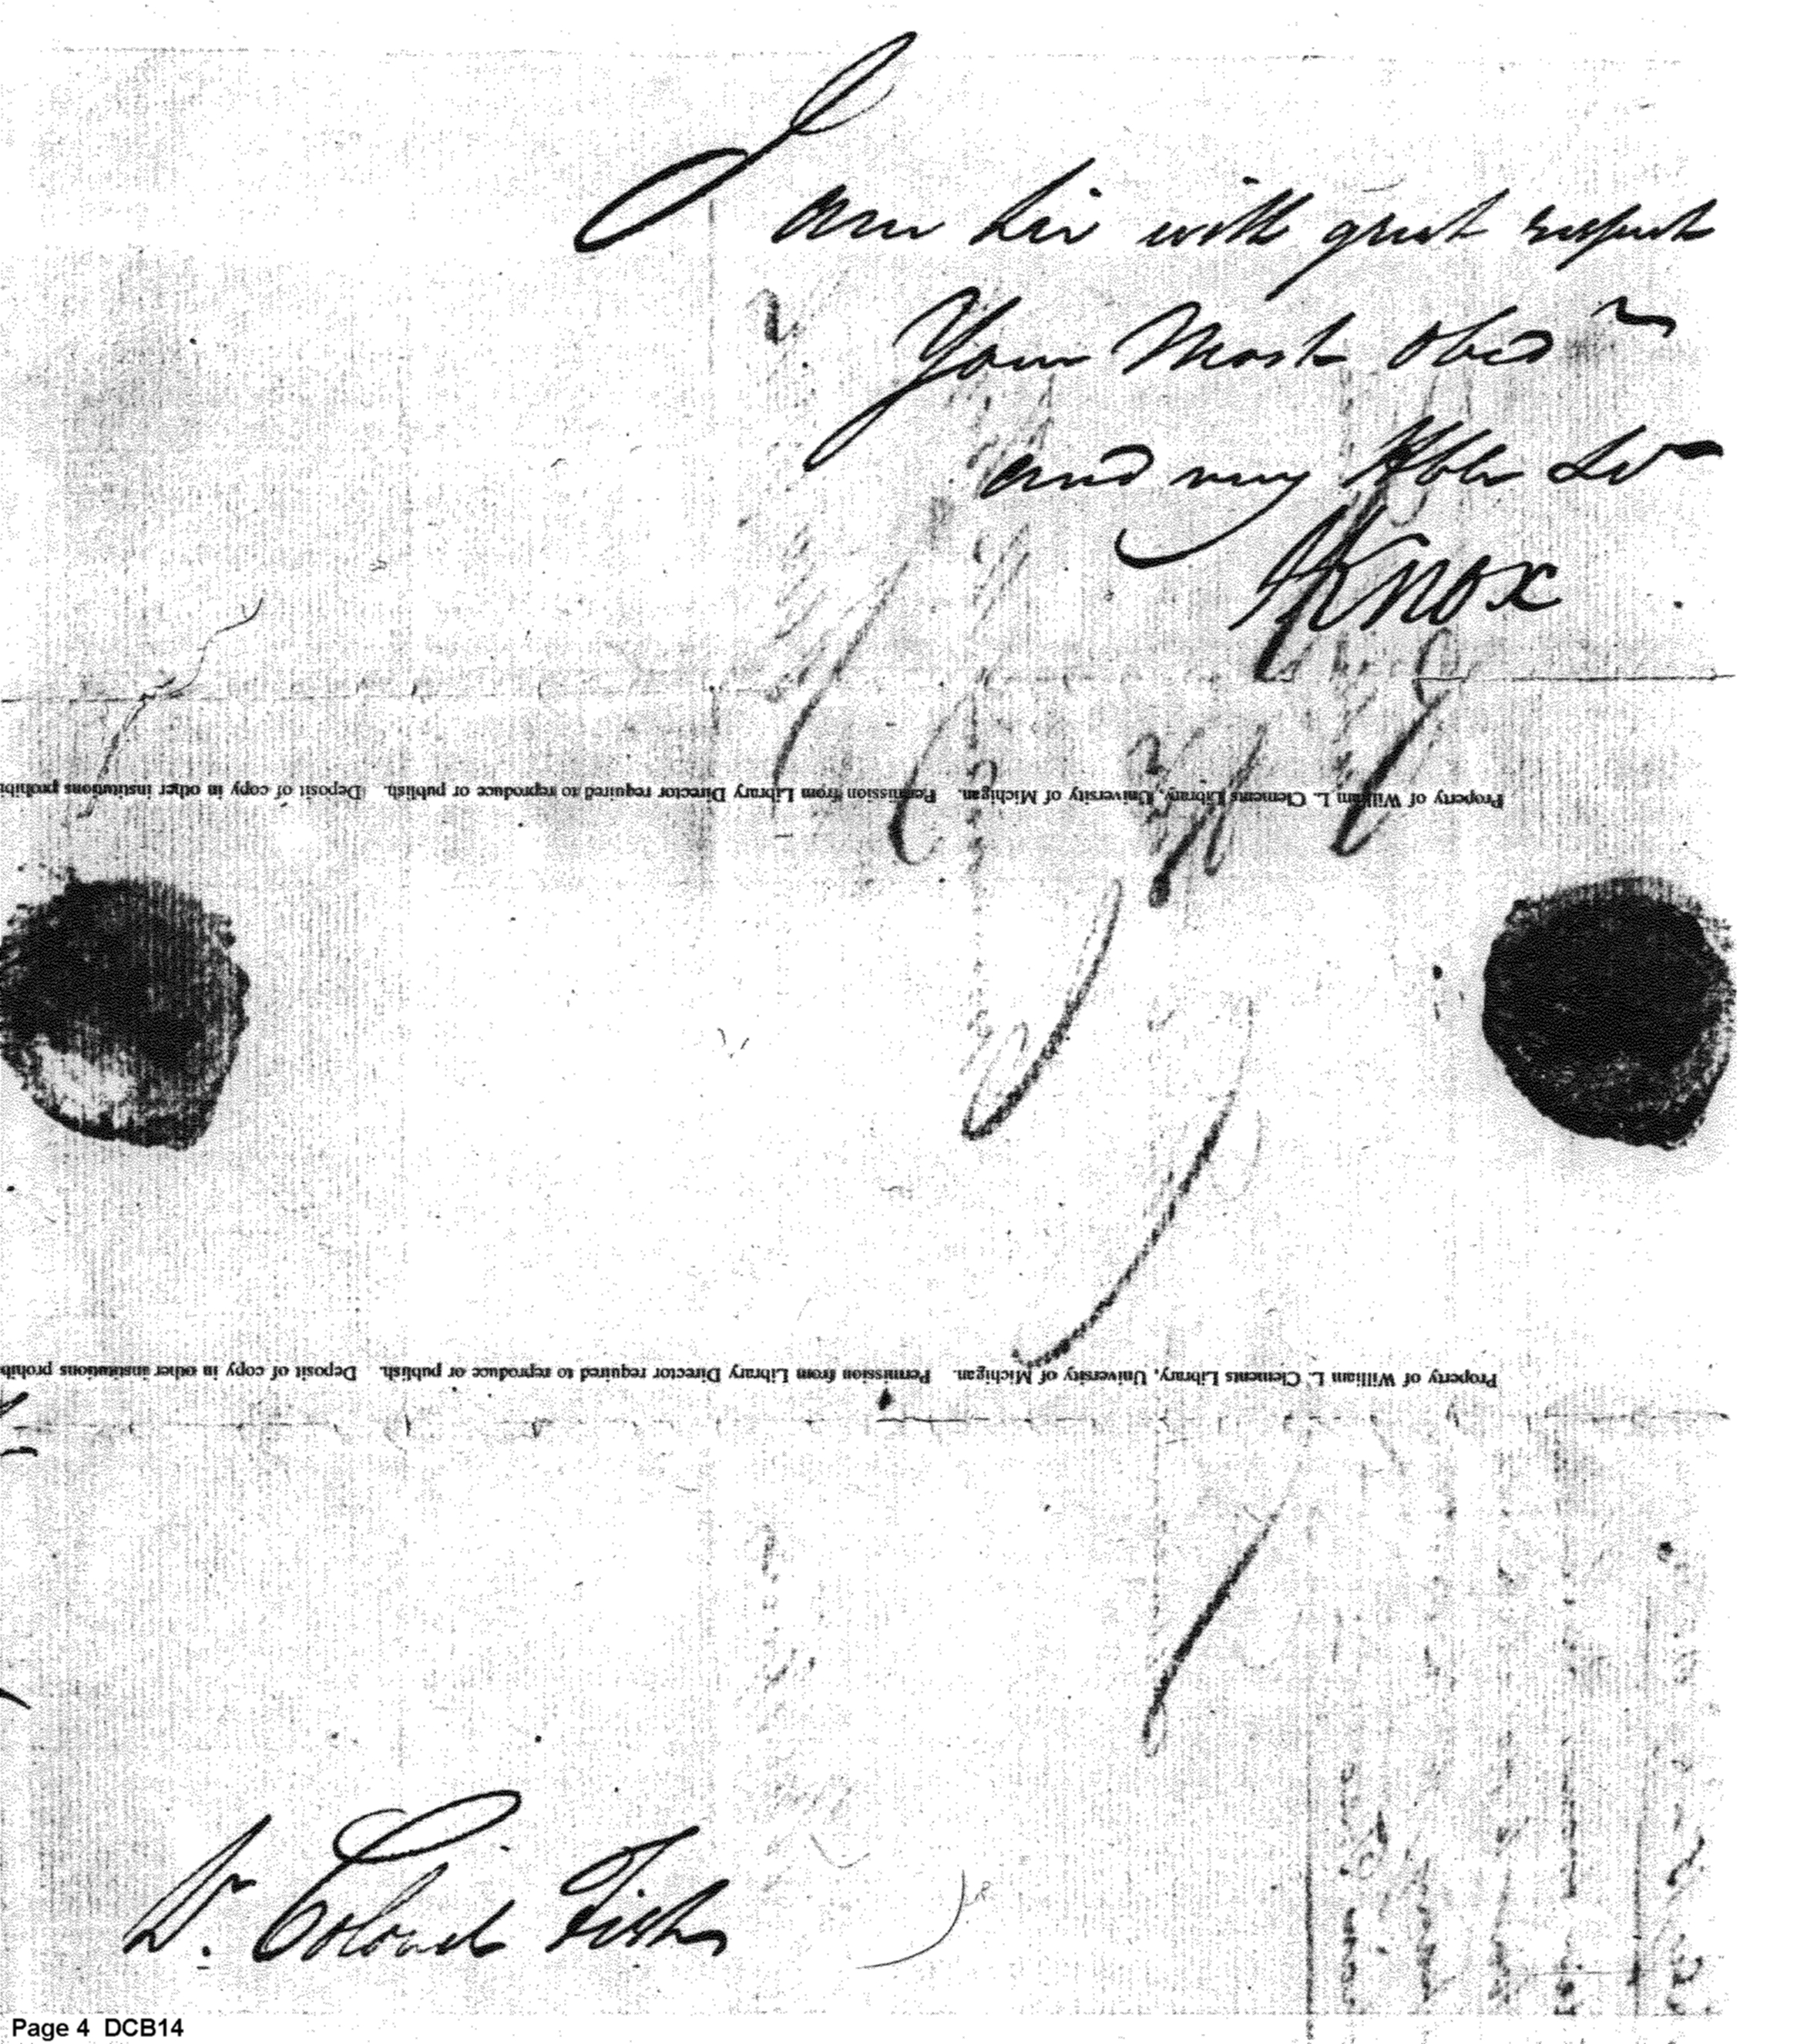 I am Sir with great respect
Your Most Obed
and very Hble Sr
HKnox
Property of William L. Clements Library, University of Michigan. Permission from Library Director required to reproduce or publish. Deposit of copy in other institutions prohibi
Property of William L. Clements Library, University of Michigan. Permission from Library Director required to reproduce or publish. Deposit of copy in other institutions prohib
Colonel Fish
Page 4 DCB14